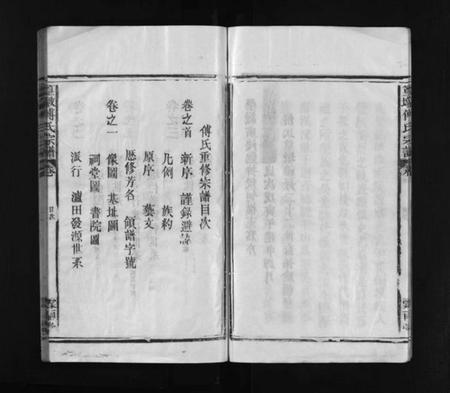 傅氏重修宗譜目次
卷之首 新序 謹錄避諱
凡例 族約
原序 藝文
歷修芳名 領譜字號
卷之一 像圖 基址圖
祠堂圖 書院圖
派行 瀘田發源世系
傅氏宗譜 卷
目次
傅氏宗譜